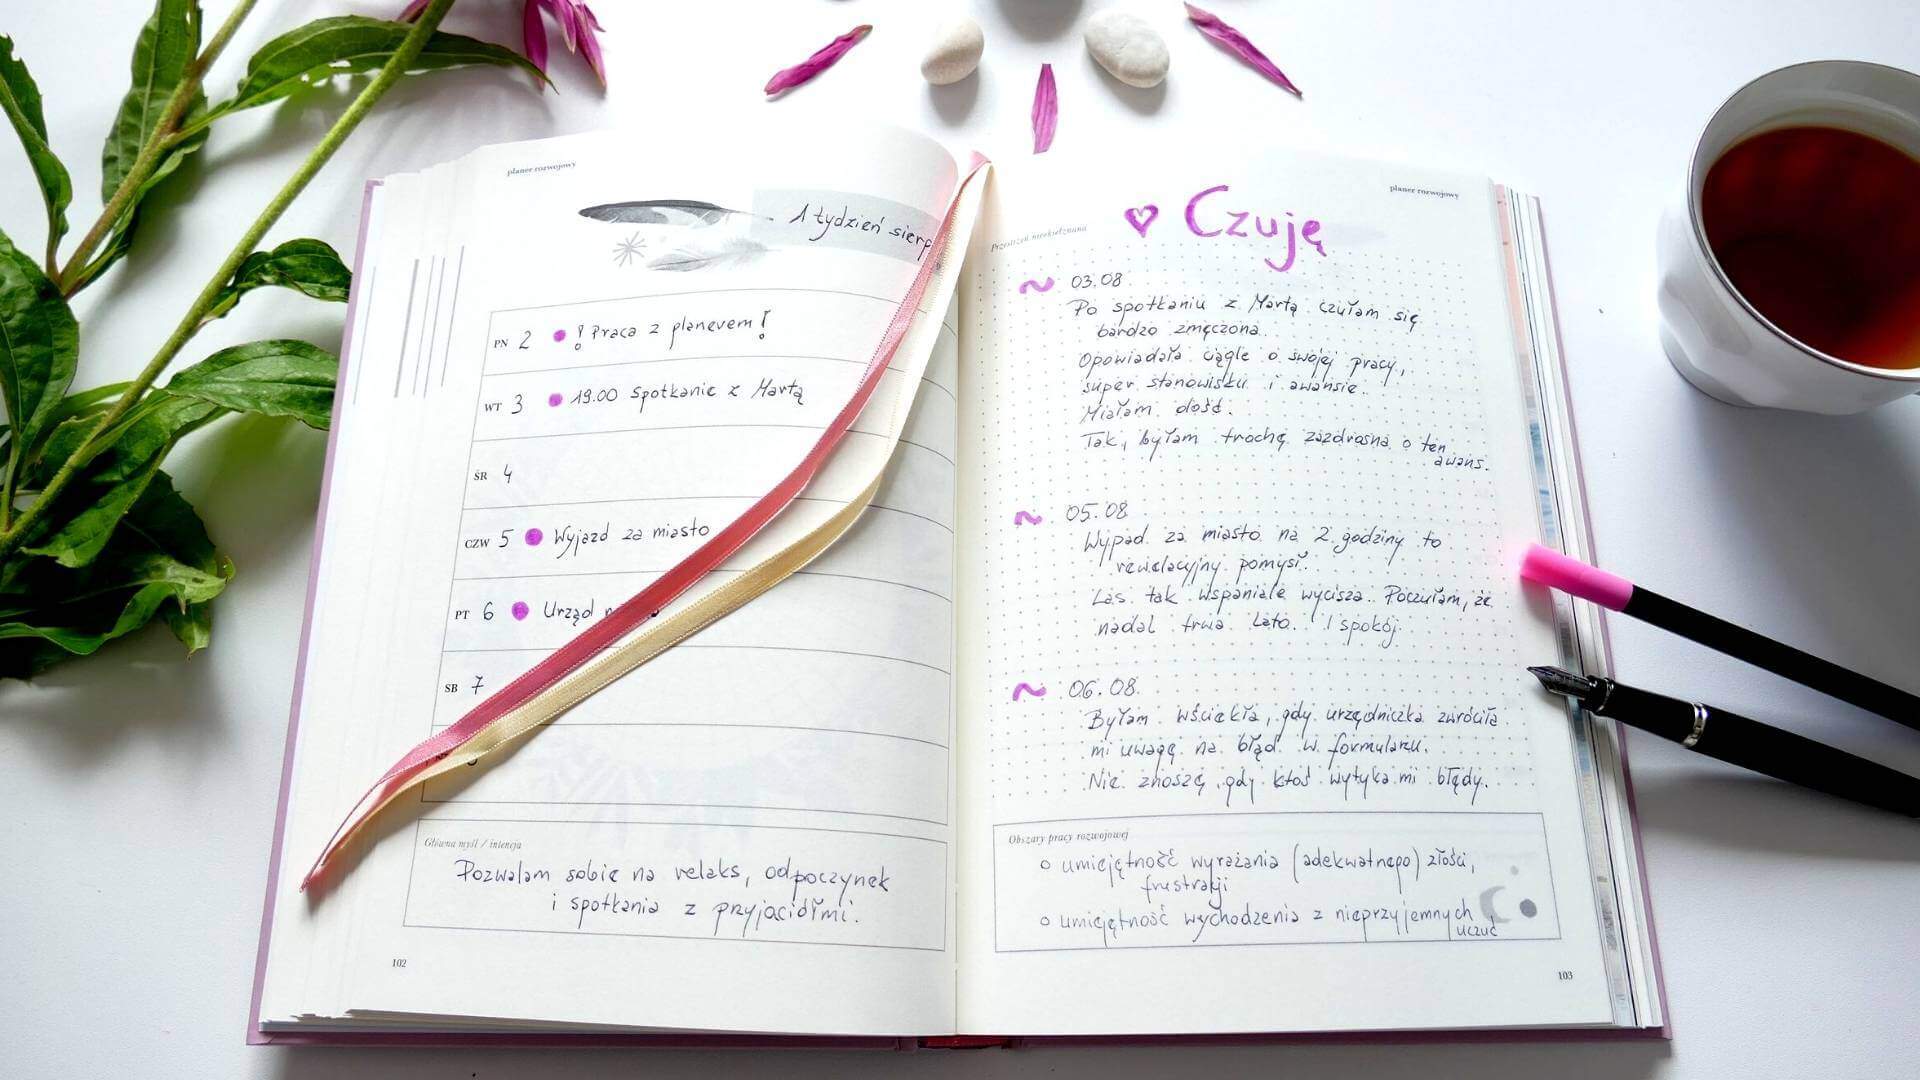 planer rozwojowy
1 tydzień sierp
PN 2 ! Praca z planerem!
WT 3 19.00 Spotkanie z Martą
ŚR 4
CZW 5 Wyjazd za miasto
PT 6 Urząd
SB 7
Główna myśl / intencja
Pozwalam sobie na relaks, odpoczynek
i spotkania z przyjaciółmi.
102
planer rozwojowy
Przestrzeń nieokiełznana
Czuję
03.08
Po spotkaniu z Martą czułam się
bardzo zmęczona.
Opowiadała ciągle o swojej pracy,
super stanowisku i awansie.
Miałam dość.
Tak, byłam trochę zazdrosna o ten
awans.
05.08
Wypad za miasto na 2 godziny to
rewelacyjny pomysł.
Las tak wspaniale wycisza. Poczułam, że
nadal trwa lato. I spokój.
06.08.
Byłam wściekła, gdy urzędniczka zwróciła
mi uwagę na błąd w formularzu.
Nie znoszę, gdy ktoś wytyka mi błędy.
Obszary pracy rozwojowej
o umiejętność wyrażania (adekwatnego) złości,
frustracji
o umiejętność wychodzenia z nieprzyjemnych
uczuć
103